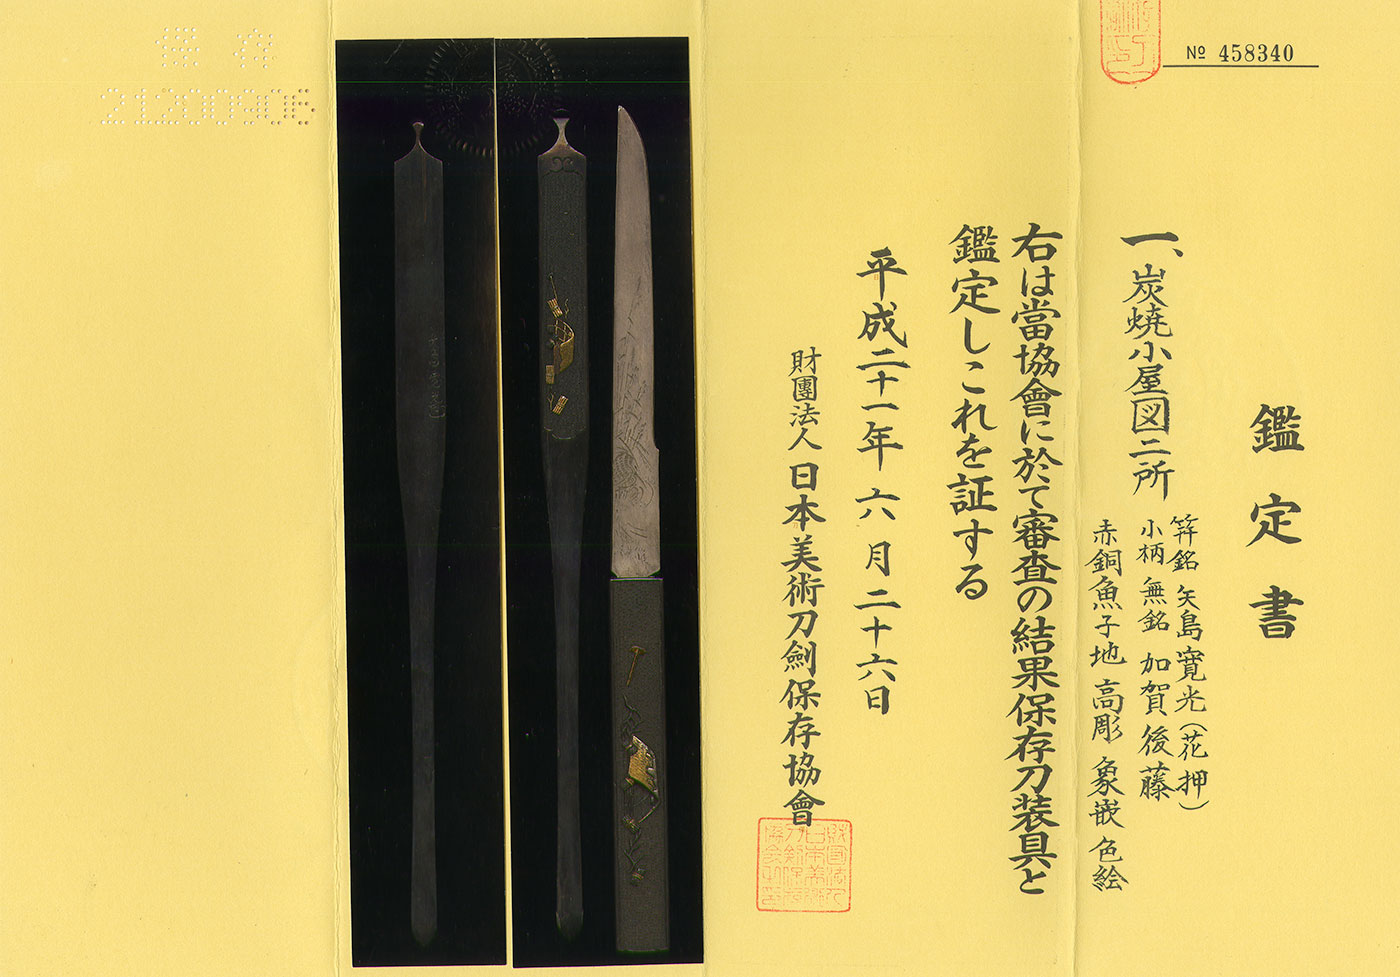 № 458340
鑑定書
一、炭焼小屋図二所
笄銘 矢島寛光(花押)
小柄 無銘 加賀後藤
赤銅魚子地 高彫 象嵌色絵
右は當協會に於て審査の結果保存刀装具と
鑑定しこれを証する
平成二十一年六月二十六日
財團法人日本美術刀劍保存協會
保存
21200906